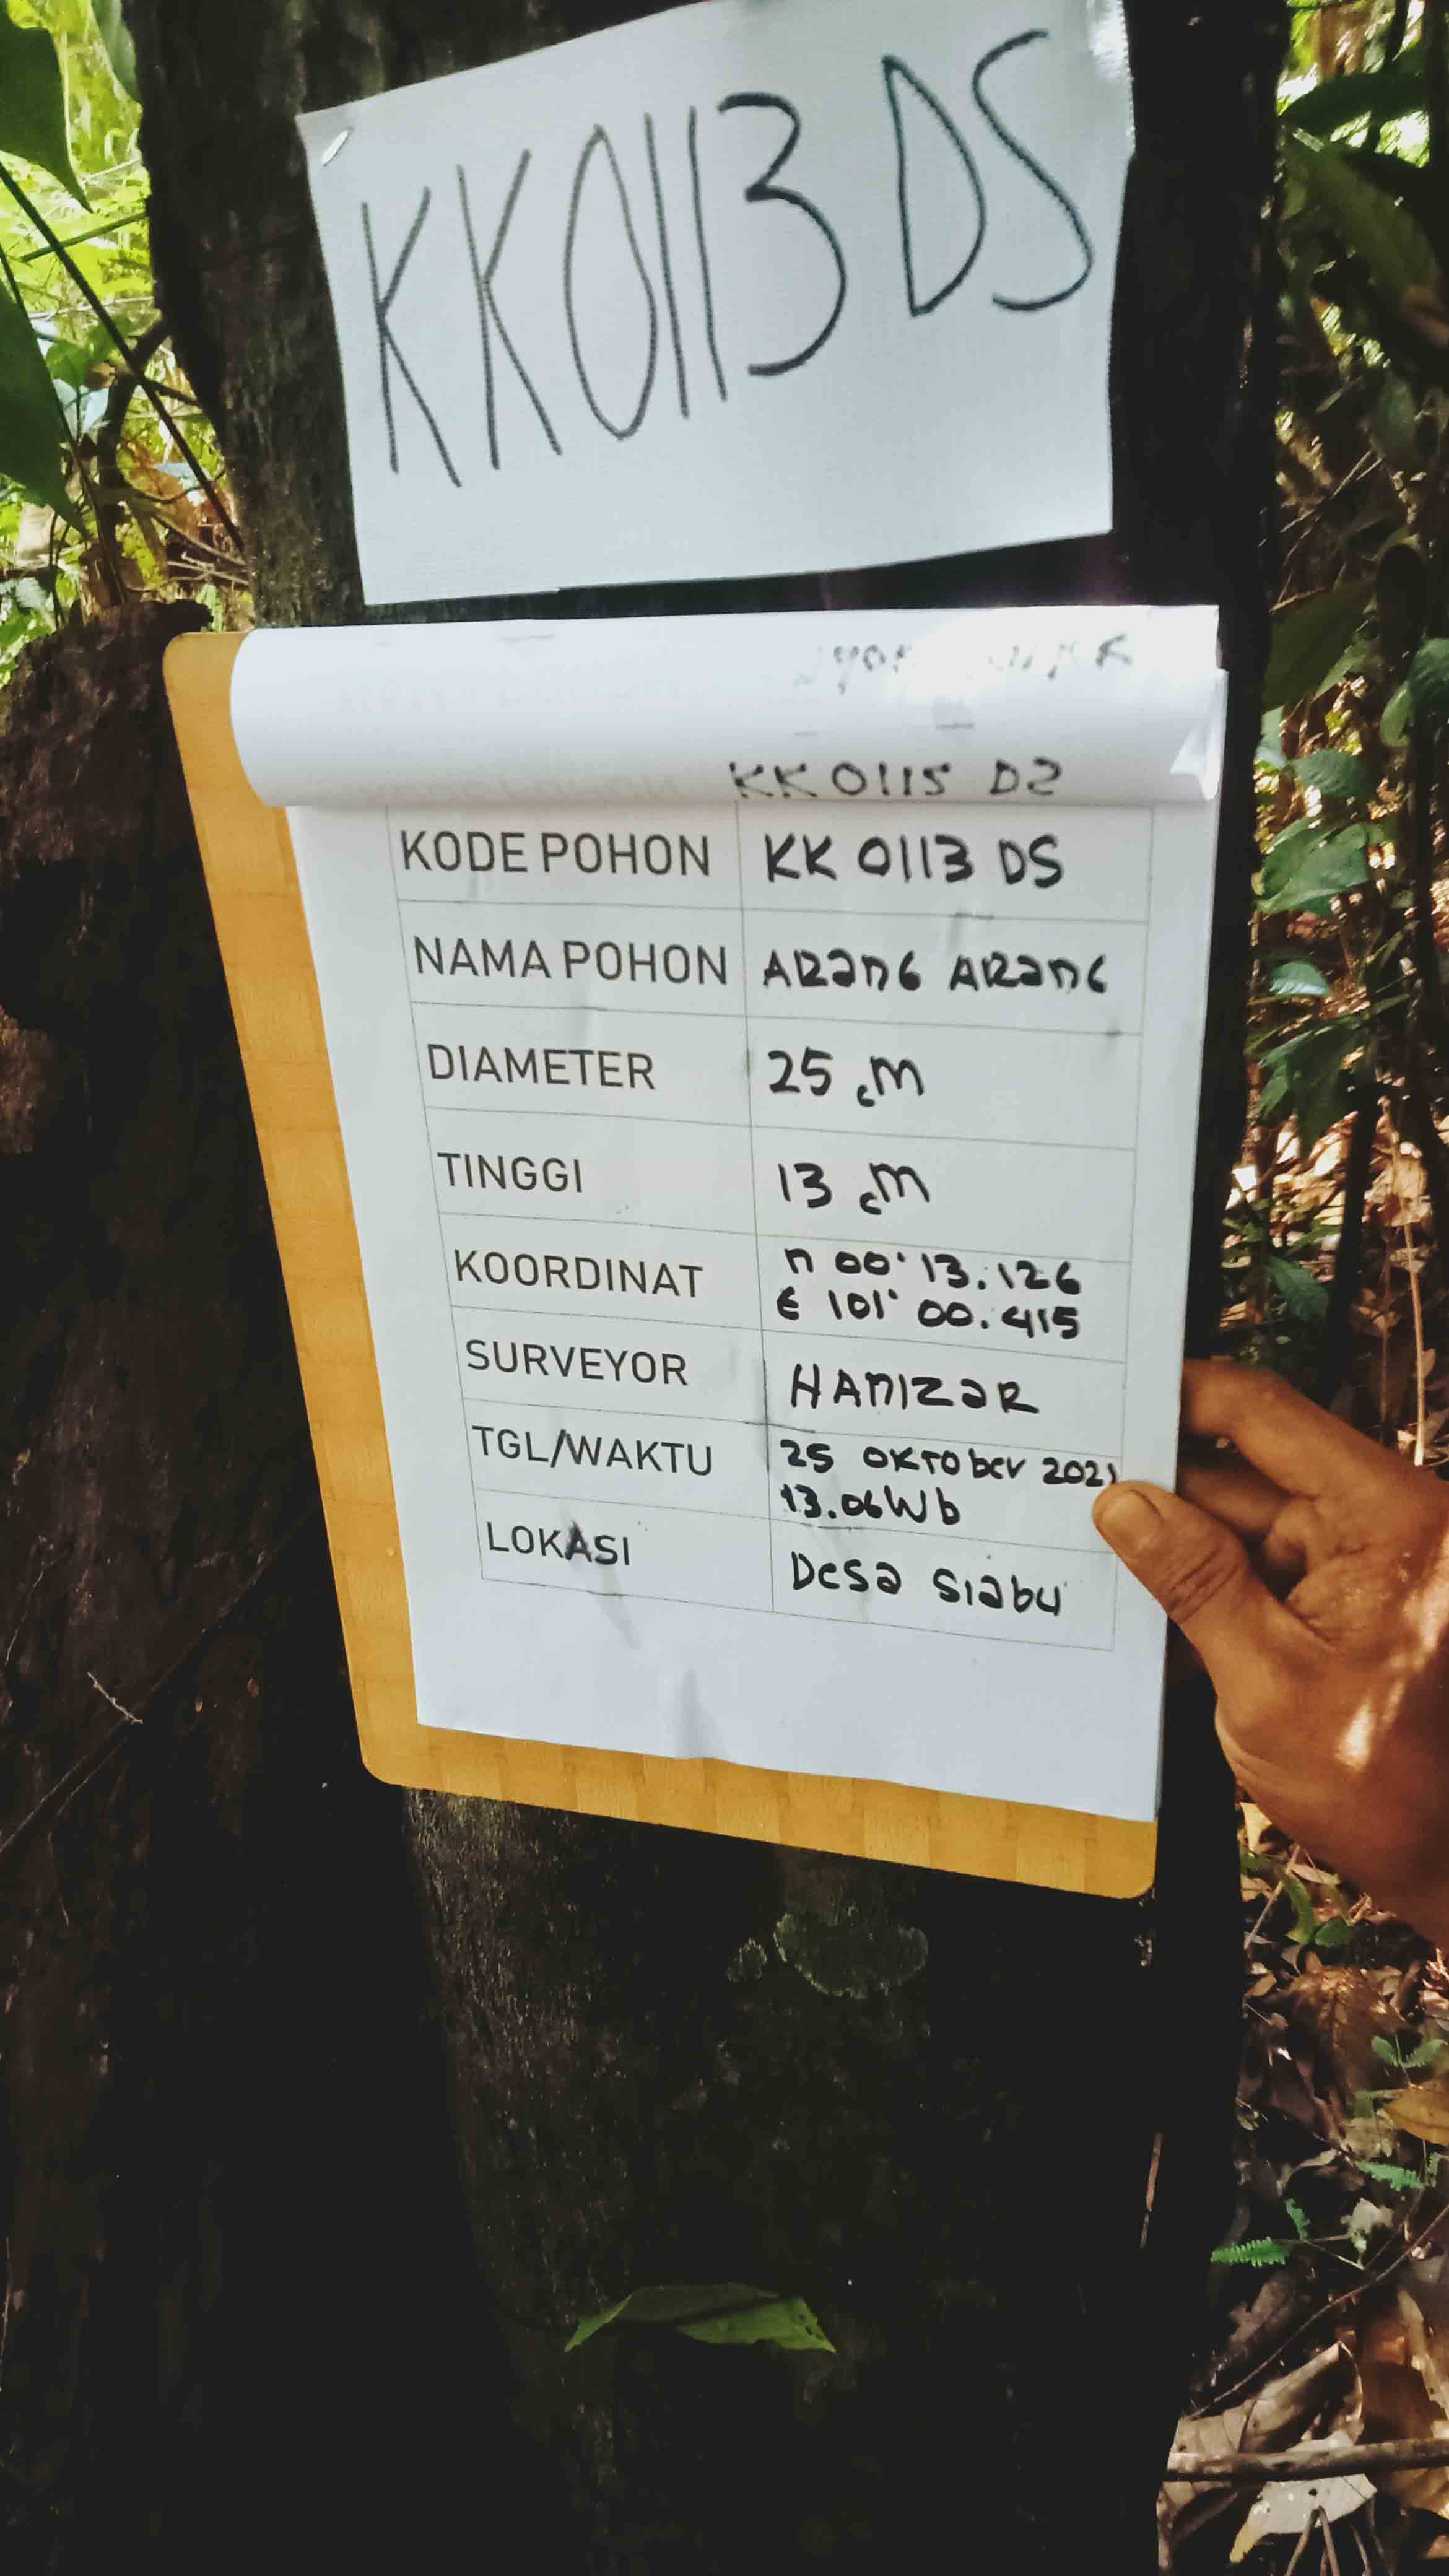 KK0113 DS
KK 0115 D2
KODE POHON KK 0113 DS
NAMA POHON ARanG ARanG
DIAMETER 25 cm
TINGGI 13 cm
KOORDINAT n 00° 13.126
E 101° 00.415
SURVEYOR HAnIZaR
TGL/WAKTU 25 OKTOber 2021
13.06 Wb
LOKASI Desa Siabu